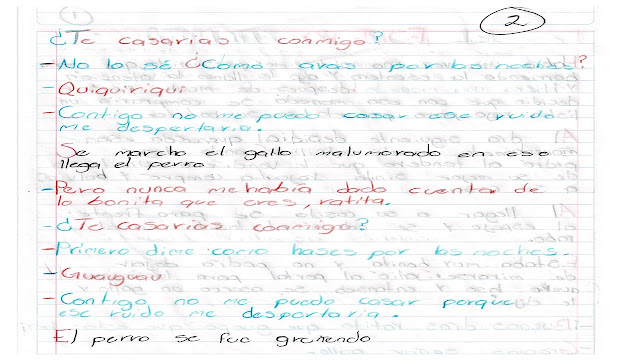 2
¿Te casarias conmigo?
- No lo sé ¿Como aras por las noches?
- Quiquiriqui
- Contigo no me puedo casar ese ruido
me despertaria.
Se marcho el gallo malumorado en ese
llega el perro
- Pero nunca me habia dado cuenta de
lo bonita que eres, ratita.
- ¿Te casarias conmigo?
- Primero dime como hases por las noches.
- Guauguau
- Contigo no me puedo casar porque
ese ruido me despertaria.
El perro se fue gruñendo